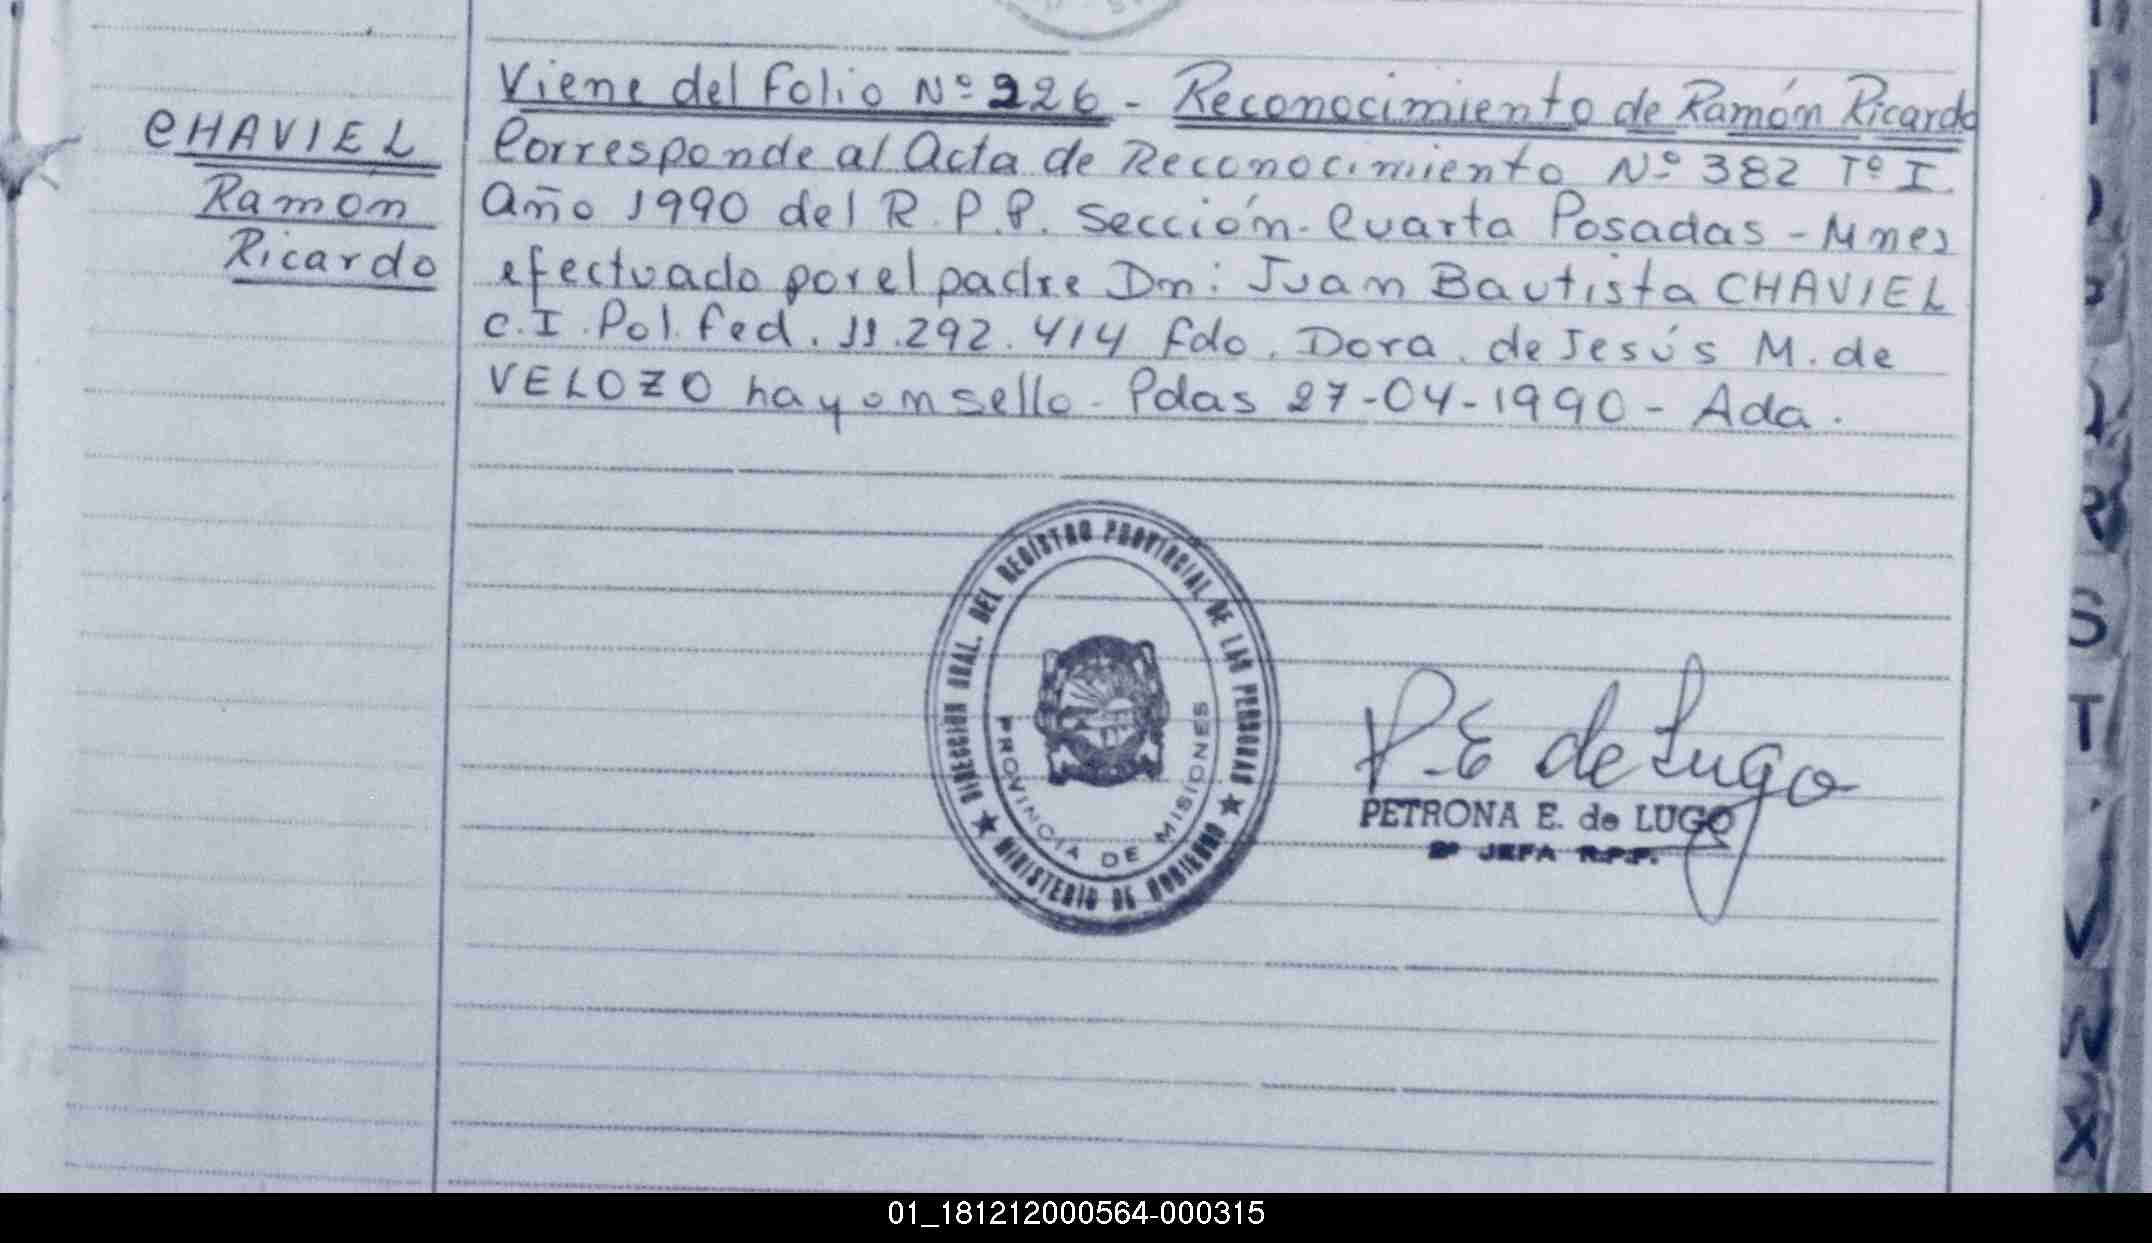 CHAVIEL
Ramón
Ricardo
Viene del Folio Nº 226 - Reconocimiento de Ramón Ricardo
Corresponde al Acta de Reconocimiento Nº 382 Tº I
Año 1990 del R.P.P. Sección Cuarta Posadas - Mnes
efectuado por el padre Dn: Juan Bautista CHAVIEL
C.I. Pol. Fed. 11.292.414 fdo. Dora de Jesús M. de
VELOZO hay on sello - Pdas 27-04-1990 - Ada.
DIRECCION GRAL. DEL REGISTRO PROVINCIAL DE LAS PERSONAS
PROVINCIA DE MISIONES
★ MINISTERIO DE GOBIERNO ★
P.E de Lugo
PETRONA E. de LUGO
2ª JEFA R.P.P.
S
T
V
W
X
01_181212000564-000315